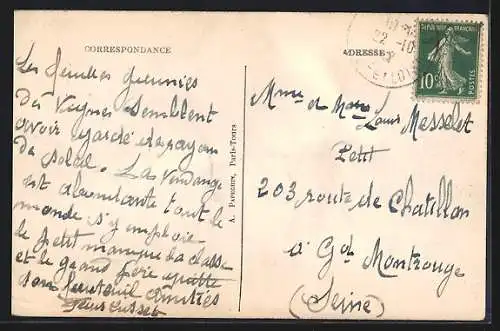 CORRESPONDANCE
Les feuilles jaunies
des vignes semblent
avoir gardé des rayons
de soleil. La vendange
est abondante tout le
monde s'y emploie
le petit manque la classe
et le grand père quitte
son fauteuil Amitiés
A. PAPEGHIN, Paris-Tours
ADRESSE
REPUBLIQUE FRANÇAISE
10c
POSTES
22 -10
Mme et Louis Messelet
Petit
203 route de Chatillon
à Gd Montrouge
(Seine)